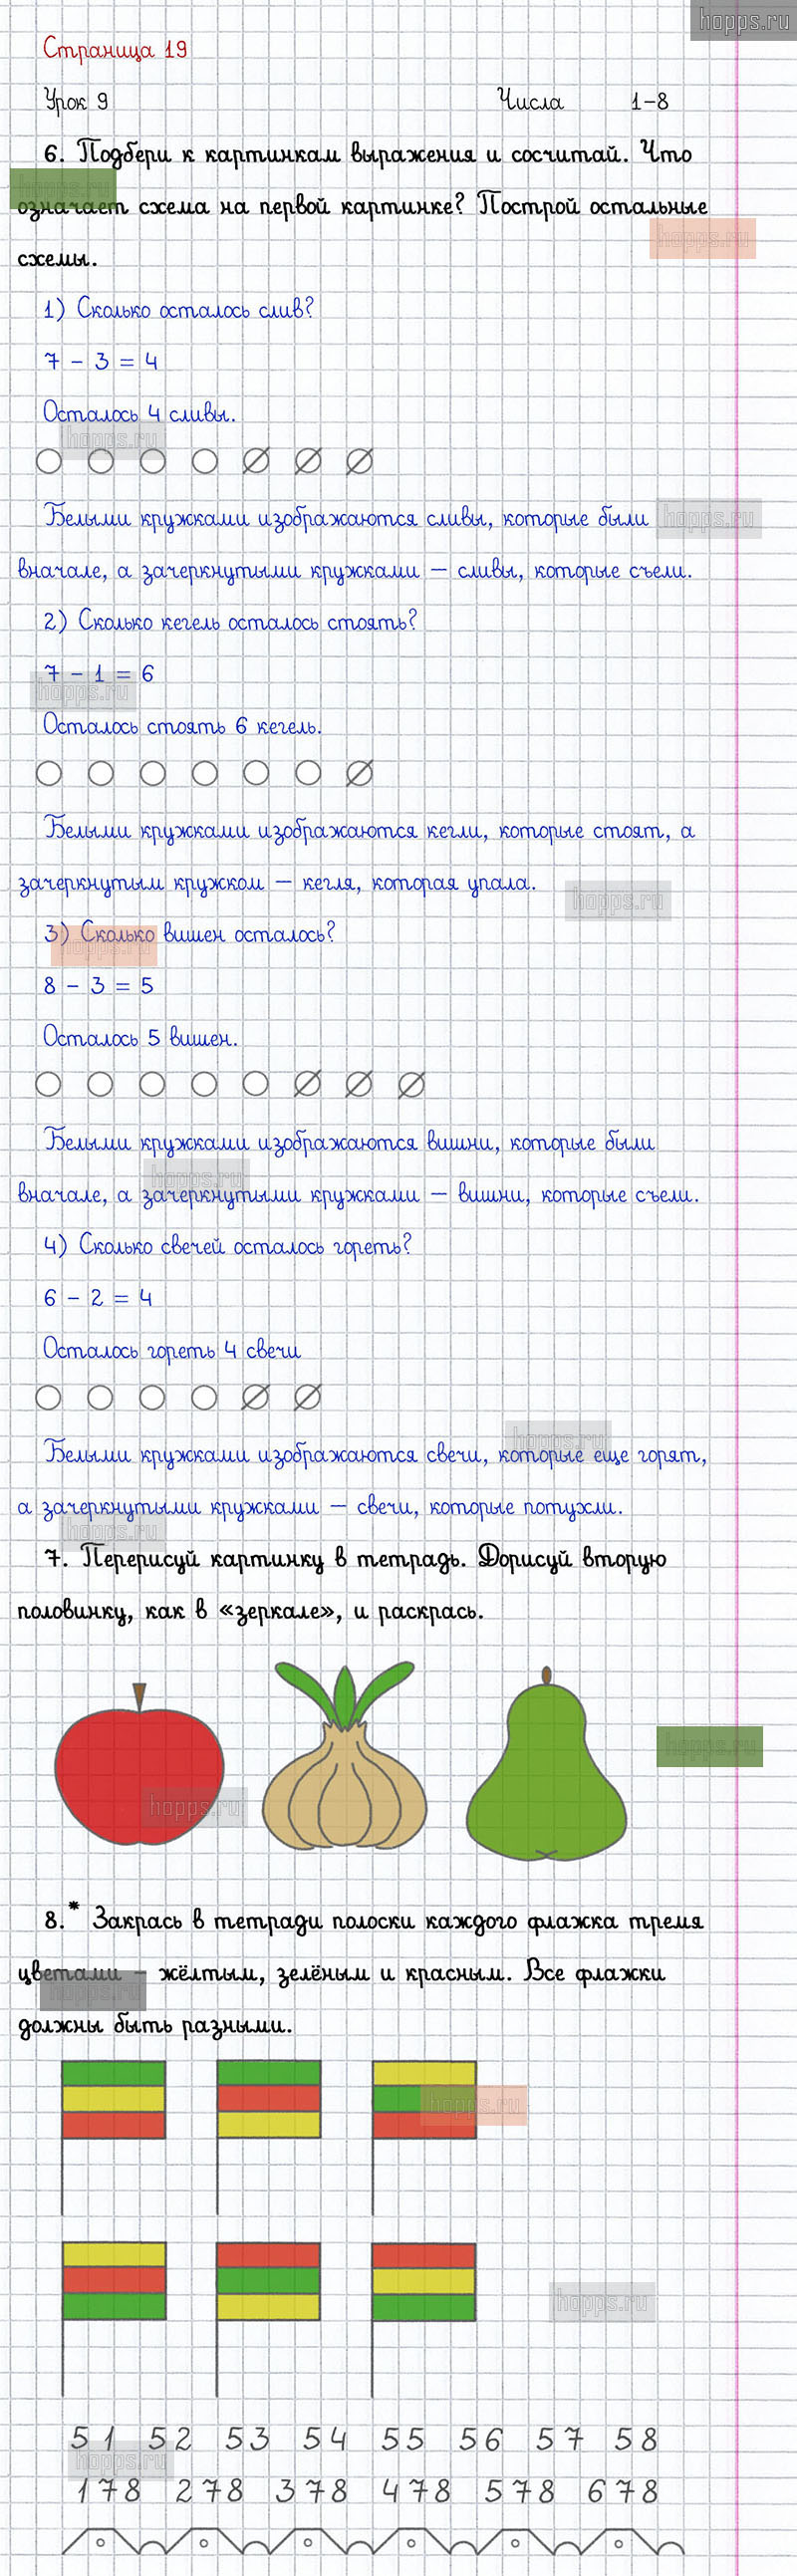 hopps.ru
Страница 19
Урок 9 Числа 1-8
6. Подбери к картинкам выражения и сосчитай. Что
hopps.ru
означает схема на первой картинке? Построй остальные
hopps.ru
схемы.
1) Сколько осталось слив?
7 - 3 = 4
Осталось 4 сливы.
hopps.ru
Белыми кружками изображаются сливы, которые были
hopps.ru
вначале, а зачеркнутыми кружками — сливы, которые съели.
2) Сколько кегель осталось стоять?
7 - 1 = 6
hopps.ru
Осталось стоять 6 кегель.
Белыми кружками изображаются кегли, которые стоят, а
зачеркнутым кружком — кегля, которая упала.
hopps.ru
3) Сколько вишен осталось?
hopps.ru
8 - 3 = 5
Осталось 5 вишен.
Белыми кружками изображаются вишни, которые были
hopps.ru
вначале, а зачеркнутыми кружками — вишни, которые съели.
4) Сколько свечей осталось гореть?
6 - 2 = 4
Осталось гореть 4 свечи
hopps.ru
Белыми кружками изображаются свечи, которые еще горят,
а зачеркнутыми кружками — свечи, которые потухли.
hopps.ru
7. Перерисуй картинку в тетрадь. Дорисуй вторую
половинку, как в «зеркале», и раскрась.
hopps.ru
hopps.ru
8.* Закрась в тетради полоски каждого флажка тремя
цветами – жёлтым, зелёным и красным. Все флажки
hopps.ru
должны быть разными.
hopps.ru
hopps.ru
51 52 53 54 55 56 57 58
hopps.ru
178 278 378 478 578 678